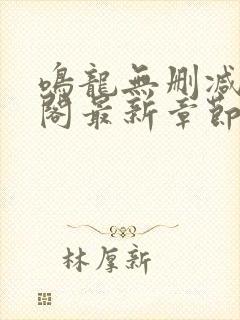 鳴龍無删减
閣最新章節
林厚新